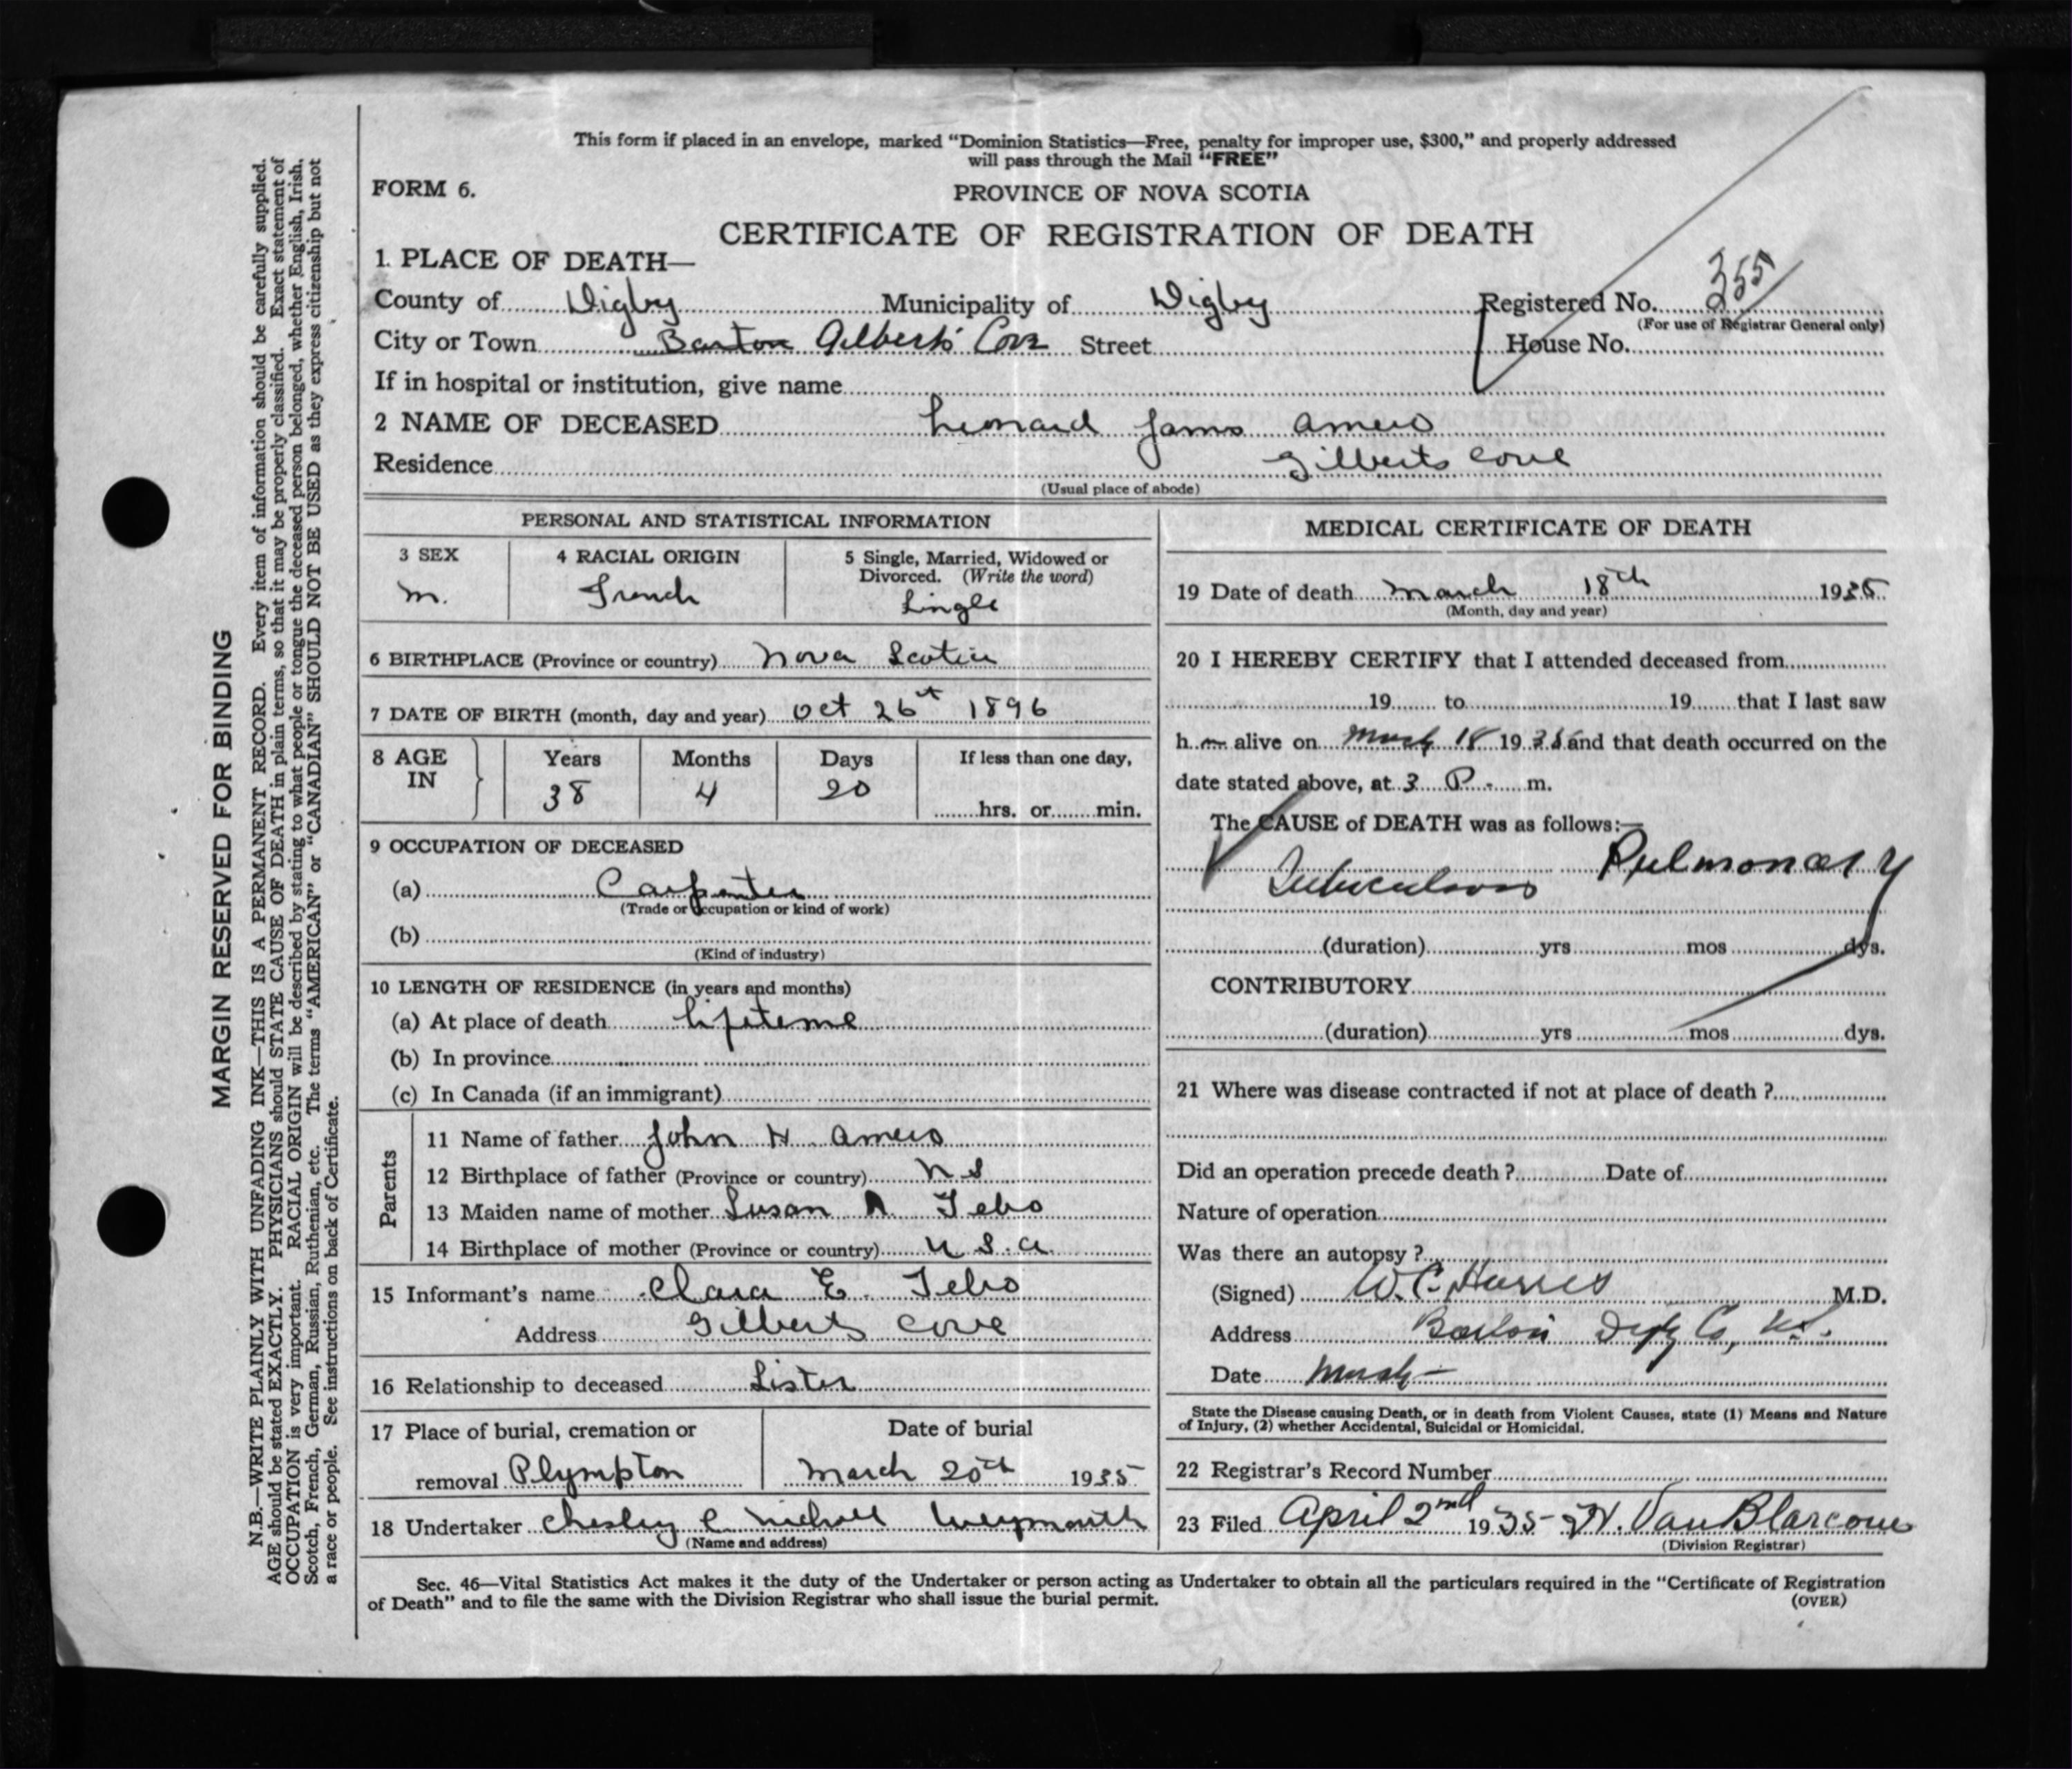 This form if placed in an envelope, marked “Dominion Statistics—Free, penalty for improper use, $300,” and properly addressed
will pass through the Mail “FREE”
FORM 6.
PROVINCE OF NOVA SCOTIA
CERTIFICATE OF REGISTRATION OF DEATH
1. PLACE OF DEATH—
County of Digby Municipality of Digby Registered No. 355
(For use of Registrar General only)
City or Town Barton Gilberts Cove Street House No.
If in hospital or institution, give name
2 NAME OF DECEASED Leonard James Amero
Residence Gilberts Cove
(Usual place of abode)
PERSONAL AND STATISTICAL INFORMATION
3 SEX
m.
4 RACIAL ORIGIN
French
5 Single, Married, Widowed or
Divorced. (Write the word)
Single
6 BIRTHPLACE (Province or country) Nova Scotia
7 DATE OF BIRTH (month, day and year) Oct 26th 1896
8 AGE IN
Years Months Days If less than one day,
38 4 20 hrs. or min.
9 OCCUPATION OF DECEASED
(a) Carpenter
(Trade or occupation or kind of work)
(b)
(Kind of industry)
10 LENGTH OF RESIDENCE (in years and months)
(a) At place of death lifeteme
(b) In province
(c) In Canada (if an immigrant)
Parents
11 Name of father John H Amero
12 Birthplace of father (Province or country) N S
13 Maiden name of mother Susan A Tebo
14 Birthplace of mother (Province or country) U.S.A.
15 Informant's name Clara E. Tebo
Address Gilberts Cove
16 Relationship to deceased Sister
17 Place of burial, cremation or
removal Plympton
Date of burial
March 20th 1935
18 Undertaker Chesley C. Nichols Weymouth
(Name and address)
MEDICAL CERTIFICATE OF DEATH
19 Date of death March 18th 1935
(Month, day and year)
20 I HEREBY CERTIFY that I attended deceased from
19 to 19 that I last saw
h m alive on March 18 1935 and that death occurred on the
date stated above, at 3 P. m.
The CAUSE of DEATH was as follows:—
Tuberculosis Pulmonary
(duration) yrs mos dys.
CONTRIBUTORY
(duration) yrs mos dys.
21 Where was disease contracted if not at place of death ?
Did an operation precede death ? Date of
Nature of operation
Was there an autopsy ?
(Signed) W. C. Harris M.D.
Address Barton Digby Co, N.S.
Date March
State the Disease causing Death, or in death from Violent Causes, state (1) Means and Nature
of Injury, (2) whether Accidental, Suicidal or Homicidal.
22 Registrar's Record Number
23 Filed April 2nd 1935 H. Van Blarcom
(Division Registrar)
Sec. 46—Vital Statistics Act makes it the duty of the Undertaker or person acting as Undertaker to obtain all the particulars required in the “Certificate of Registration
of Death” and to file the same with the Division Registrar who shall issue the burial permit.
(OVER)
MARGIN RESERVED FOR BINDING
N.B.—WRITE PLAINLY WITH UNFADING INK—THIS IS A PERMANENT RECORD. Every item of information should be carefully supplied.
AGE should be stated EXACTLY. PHYSICIANS should STATE CAUSE OF DEATH in plain terms, so that it may be properly classified. Exact statement of
OCCUPATION is very important. RACIAL ORIGIN will be described by stating to what people or tongue the deceased person belonged, whether English, Irish,
Scotch, French, German, Russian, Ruthenian, etc. The terms “AMERICAN” or “CANADIAN” SHOULD NOT BE USED as they express citizenship but not
a race or people. See instructions on back of Certificate.